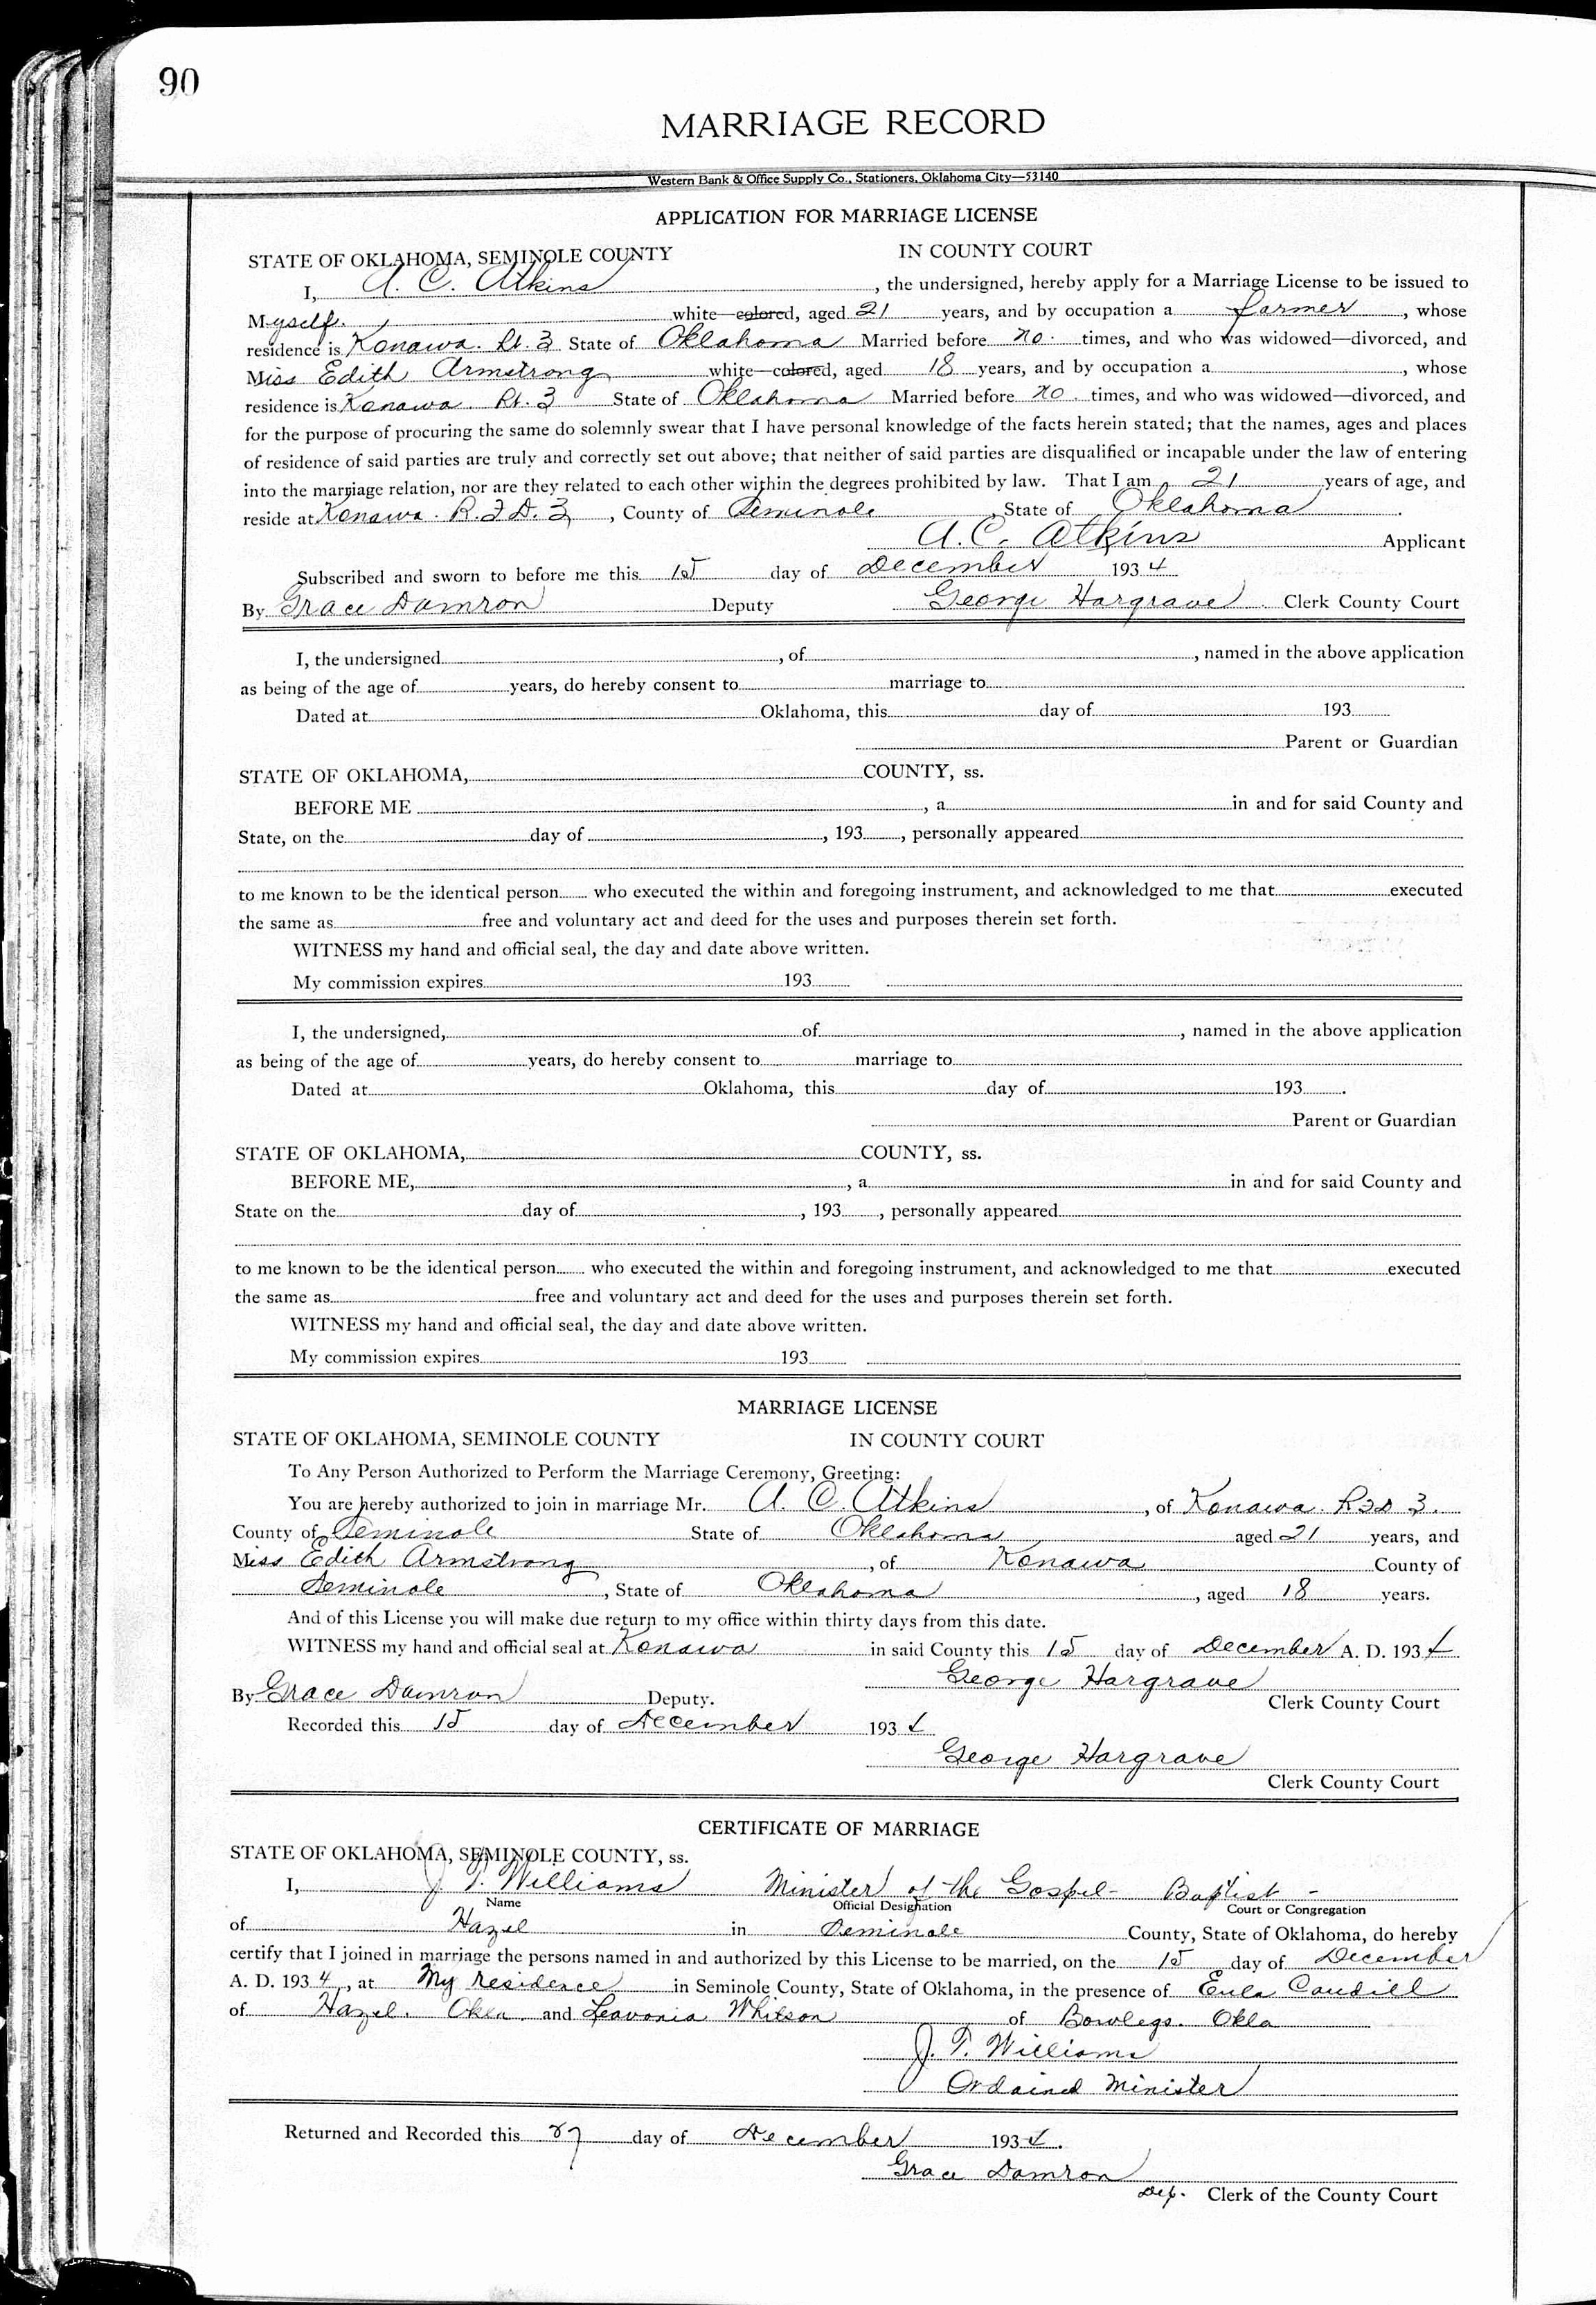 90
MARRIAGE RECORD
Western Bank & Office Supply Co., Stationers, Oklahoma City—53140
APPLICATION FOR MARRIAGE LICENSE
STATE OF OKLAHOMA, SEMINOLE COUNTY IN COUNTY COURT
I, A. C. Atkins, the undersigned, hereby apply for a Marriage License to be issued to
Myself. white—colored, aged 21 years, and by occupation a farmer, whose
residence is Konawa. Rt. 3 State of Oklahoma Married before no. times, and who was widowed—divorced, and
Miss Edith Armstrong white—colored, aged 18 years, and by occupation a, whose
residence is Konawa. Rt. 3 State of Oklahoma Married before no. times, and who was widowed—divorced, and
for the purpose of procuring the same do solemnly swear that I have personal knowledge of the facts herein stated; that the names, ages and places
of residence of said parties are truly and correctly set out above; that neither of said parties are disqualified or incapable under the law of entering
into the marriage relation, nor are they related to each other within the degrees prohibited by law. That I am 21 years of age, and
reside at Konawa. R.F.D. 3, County of Seminole, State of Oklahoma.
A. C. Atkins Applicant
Subscribed and sworn to before me this 15 day of December 1934
By Grace Damron Deputy George Hargrave Clerk County Court
I, the undersigned, of, named in the above application
as being of the age of years, do hereby consent to marriage to
Dated at Oklahoma, this day of 193
Parent or Guardian
STATE OF OKLAHOMA, COUNTY, ss.
BEFORE ME, a in and for said County and
State, on the day of, 193, personally appeared
to me known to be the identical person who executed the within and foregoing instrument, and acknowledged to me that executed
the same as free and voluntary act and deed for the uses and purposes therein set forth.
WITNESS my hand and official seal, the day and date above written.
My commission expires 193
I, the undersigned, of, named in the above application
as being of the age of years, do hereby consent to marriage to
Dated at Oklahoma, this day of 193.
Parent or Guardian
STATE OF OKLAHOMA, COUNTY, ss.
BEFORE ME, , a in and for said County and
State on the day of, 193, personally appeared
to me known to be the identical person who executed the within and foregoing instrument, and acknowledged to me that executed
the same as free and voluntary act and deed for the uses and purposes therein set forth.
WITNESS my hand and official seal, the day and date above written.
My commission expires 193
MARRIAGE LICENSE
STATE OF OKLAHOMA, SEMINOLE COUNTY IN COUNTY COURT
To Any Person Authorized to Perform the Marriage Ceremony, Greeting:
You are hereby authorized to join in marriage Mr. A. C. Atkins, of Konawa. RFD 3.
County of Seminole State of Oklahoma aged 21 years, and
Miss Edith Armstrong, of Konawa County of
Seminole, State of Oklahoma, aged 18 years.
And of this License you will make due return to my office within thirty days from this date.
WITNESS my hand and official seal at Konawa in said County this 15 day of December A. D. 1934
George Hargrave
By Grace Damron Deputy. Clerk County Court
Recorded this 15 day of December 1934
George Hargrave
Clerk County Court
CERTIFICATE OF MARRIAGE
STATE OF OKLAHOMA, SEMINOLE COUNTY, ss.
I, J. T. Williams Minister of the Gospel- Baptist -
Name Official Designation Court or Congregation
of Hazel in Seminole County, State of Oklahoma, do hereby
certify that I joined in marriage the persons named in and authorized by this License to be married, on the 15 day of December
A. D. 1934, at My residence in Seminole County, State of Oklahoma, in the presence of Eula Caudill
of Hazel. Okla. and Leavonia Whitson of Bowlegs. Okla
J. T. Williams
Ordained Minister
Returned and Recorded this 27 day of December 1934.
Grace Damron
Dep. Clerk of the County Court